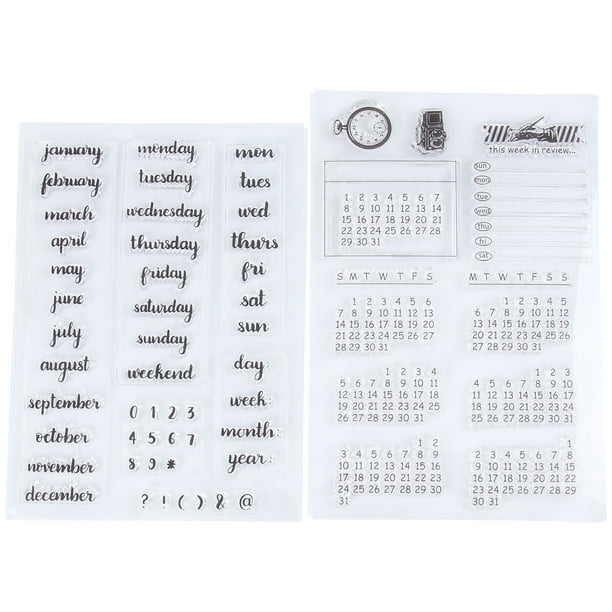 january
february
march
april
may
june
july
august
september
october
november
december
monday
tuesday
wednesday
thursday
friday
saturday
sunday
weekend
0 1 2 3
4 5 6 7
8 9 *
? ! ( ) & @
mon
tues
wed
thurs
fri
sat
sun
day:
week:
month:
year:
this week in review...
sun
mon
tue
wed
thu
fri
sat
1 2 3 4 5 6 7
8 9 10 11 12 13 14
15 16 17 18 19 20 21
22 23 24 25 26 27 28
29 30 31
S M T W T F S
M T W T F S S
1 2 3 4 5 6
7 8 9 10 11 12 13
14 15 16 17 18 19 20
21 22 23 24 25 26 27
28 29 30 31
1 2 3 4 5
6 7 8 9 10 11 12
13 14 15 16 17 18 19
20 21 22 23 24 25 26
27 28 29 30 31
1 2 3 4
5 6 7 8 9 10 11
12 13 14 15 16 17 18
19 20 21 22 23 24 25
26 27 28 29 30 31
1 2 3
4 5 6 7 8 9 10
11 12 13 14 15 16 17
18 19 20 21 22 23 24
25 26 27 28 29 30 31
1 2
3 4 5 6 7 8 9
10 11 12 13 14 15 16
17 18 19 20 21 22 23
24 25 26 27 28 29 30
31
1
2 3 4 5 6 7 8
9 10 11 12 13 14 15
16 17 18 19 20 21 22
23 24 25 26 27 28 29
30 31